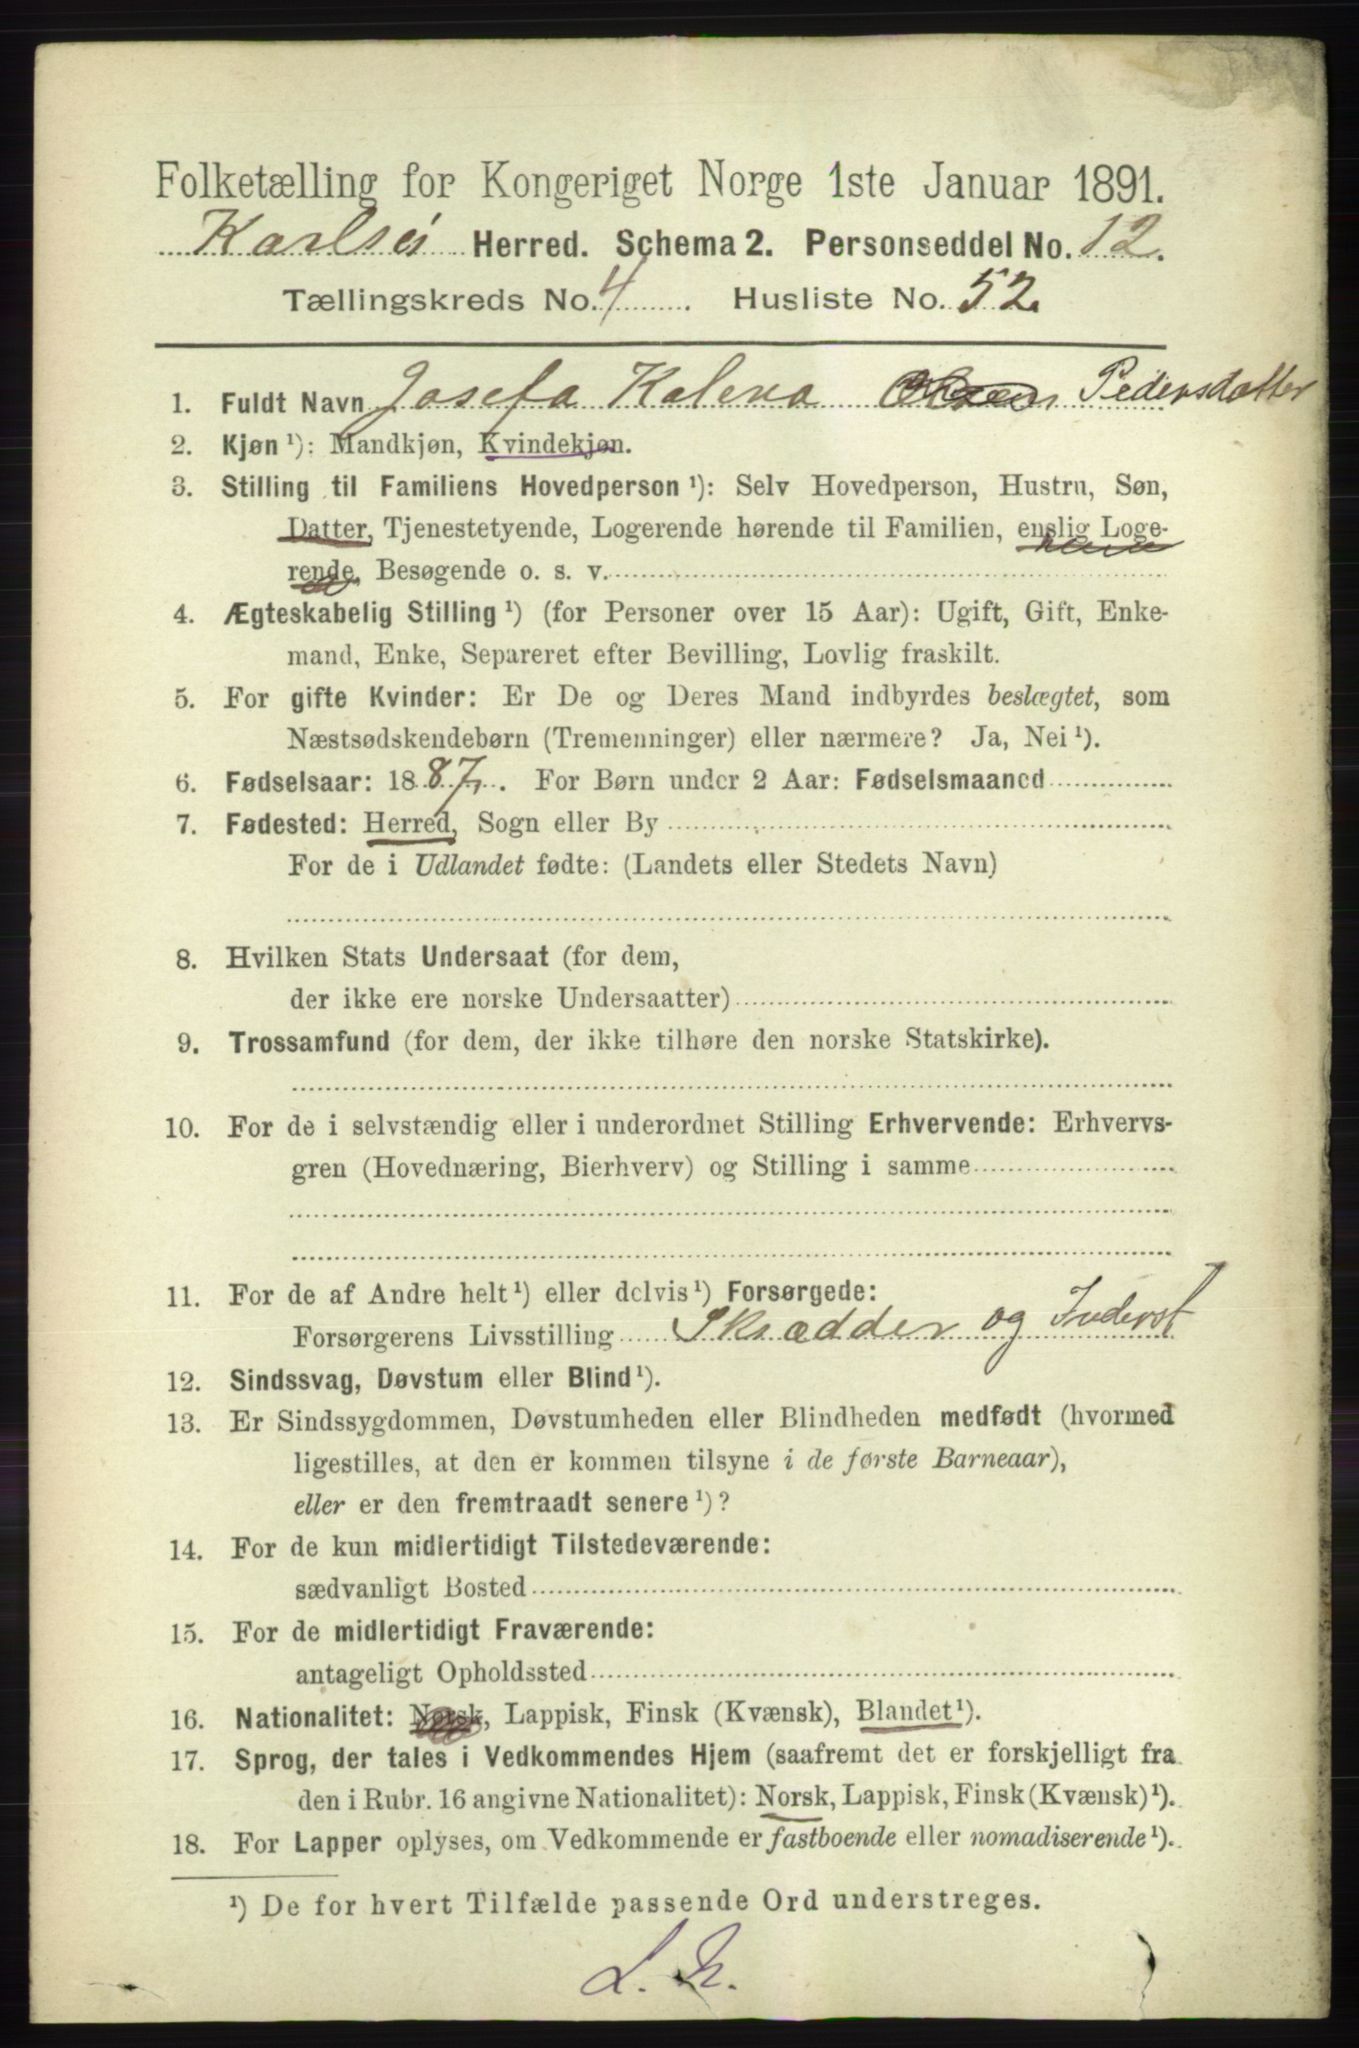 Folketælling for Kongeriget Norge 1ste Januar 1891.
Karlsö Herred. Schema 2. Personseddel No. 12.
Tællingskreds No. 4 Husliste No. 52.
1. Fuldt Navn Josefa Kalena Pedersdatter
2. Kjøn ¹): Mandkjøn, Kvindekjøn.
3. Stilling til Familiens Hovedperson ¹): Selv Hovedperson, Hustru, Søn,
Datter, Tjenestetyende, Logerende hørende til Familien, enslig Loge-
rende, Besøgende o. s. v.
4. Ægteskabelig Stilling ¹) (for Personer over 15 Aar): Ugift, Gift, Enke-
mand, Enke, Separeret efter Bevilling, Lovlig fraskilt.
5. For gifte Kvinder: Er De og Deres Mand indbyrdes beslægtet, som
Næstsødskendebørn (Tremenninger) eller nærmere? Ja, Nei ¹).
6. Fødselsaar: 1887. For Børn under 2 Aar: Fødselsmaaned
7. Fødested: Herred, Sogn eller By
For de i Udlandet fødte: (Landets eller Stedets Navn)
8. Hvilken Stats Undersaat (for dem,
der ikke ere norske Undersaatter)
9. Trossamfund (for dem, der ikke tilhøre den norske Statskirke).
10. For de i selvstændig eller i underordnet Stilling Erhvervende: Erhvervs-
gren (Hovednæring, Bierhverv) og Stilling i samme
11. For de af Andre helt ¹) eller delvis ¹) Forsørgede:
Forsørgerens Livsstilling Skrædder og Inderst
12. Sindssvag, Døvstum eller Blind ¹).
13. Er Sindssygdommen, Døvstumheden eller Blindheden medfødt (hvormed
ligestilles, at den er kommen tilsyne i de første Barneaar),
eller er den fremtraadt senere ¹)?
14. For de kun midlertidigt Tilstedeværende:
sædvanligt Bosted
15. For de midlertidigt Fraværende:
antageligt Opholdssted
16. Nationalitet: Norsk, Lappisk, Finsk (Kvænsk), Blandet ¹).
17. Sprog, der tales i Vedkommendes Hjem (saafremt det er forskjelligt fra
den i Rubr. 16 angivne Nationalitet): Norsk, Lappisk, Finsk (Kvænsk) ¹).
18. For Lapper oplyses, om Vedkommende er fastboende eller nomadiserende ¹).
¹) De for hvert Tilfælde passende Ord understreges.
L. N.